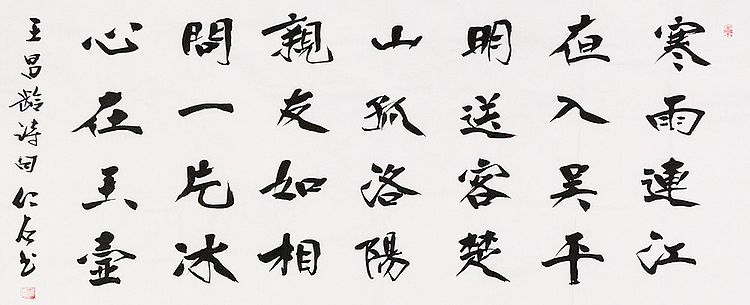 寒雨連江
夜入吴平
明送客楚
山孤洛陽
親友如相
問一片冰
心在玉壺
王昌齡詩句 仁 书